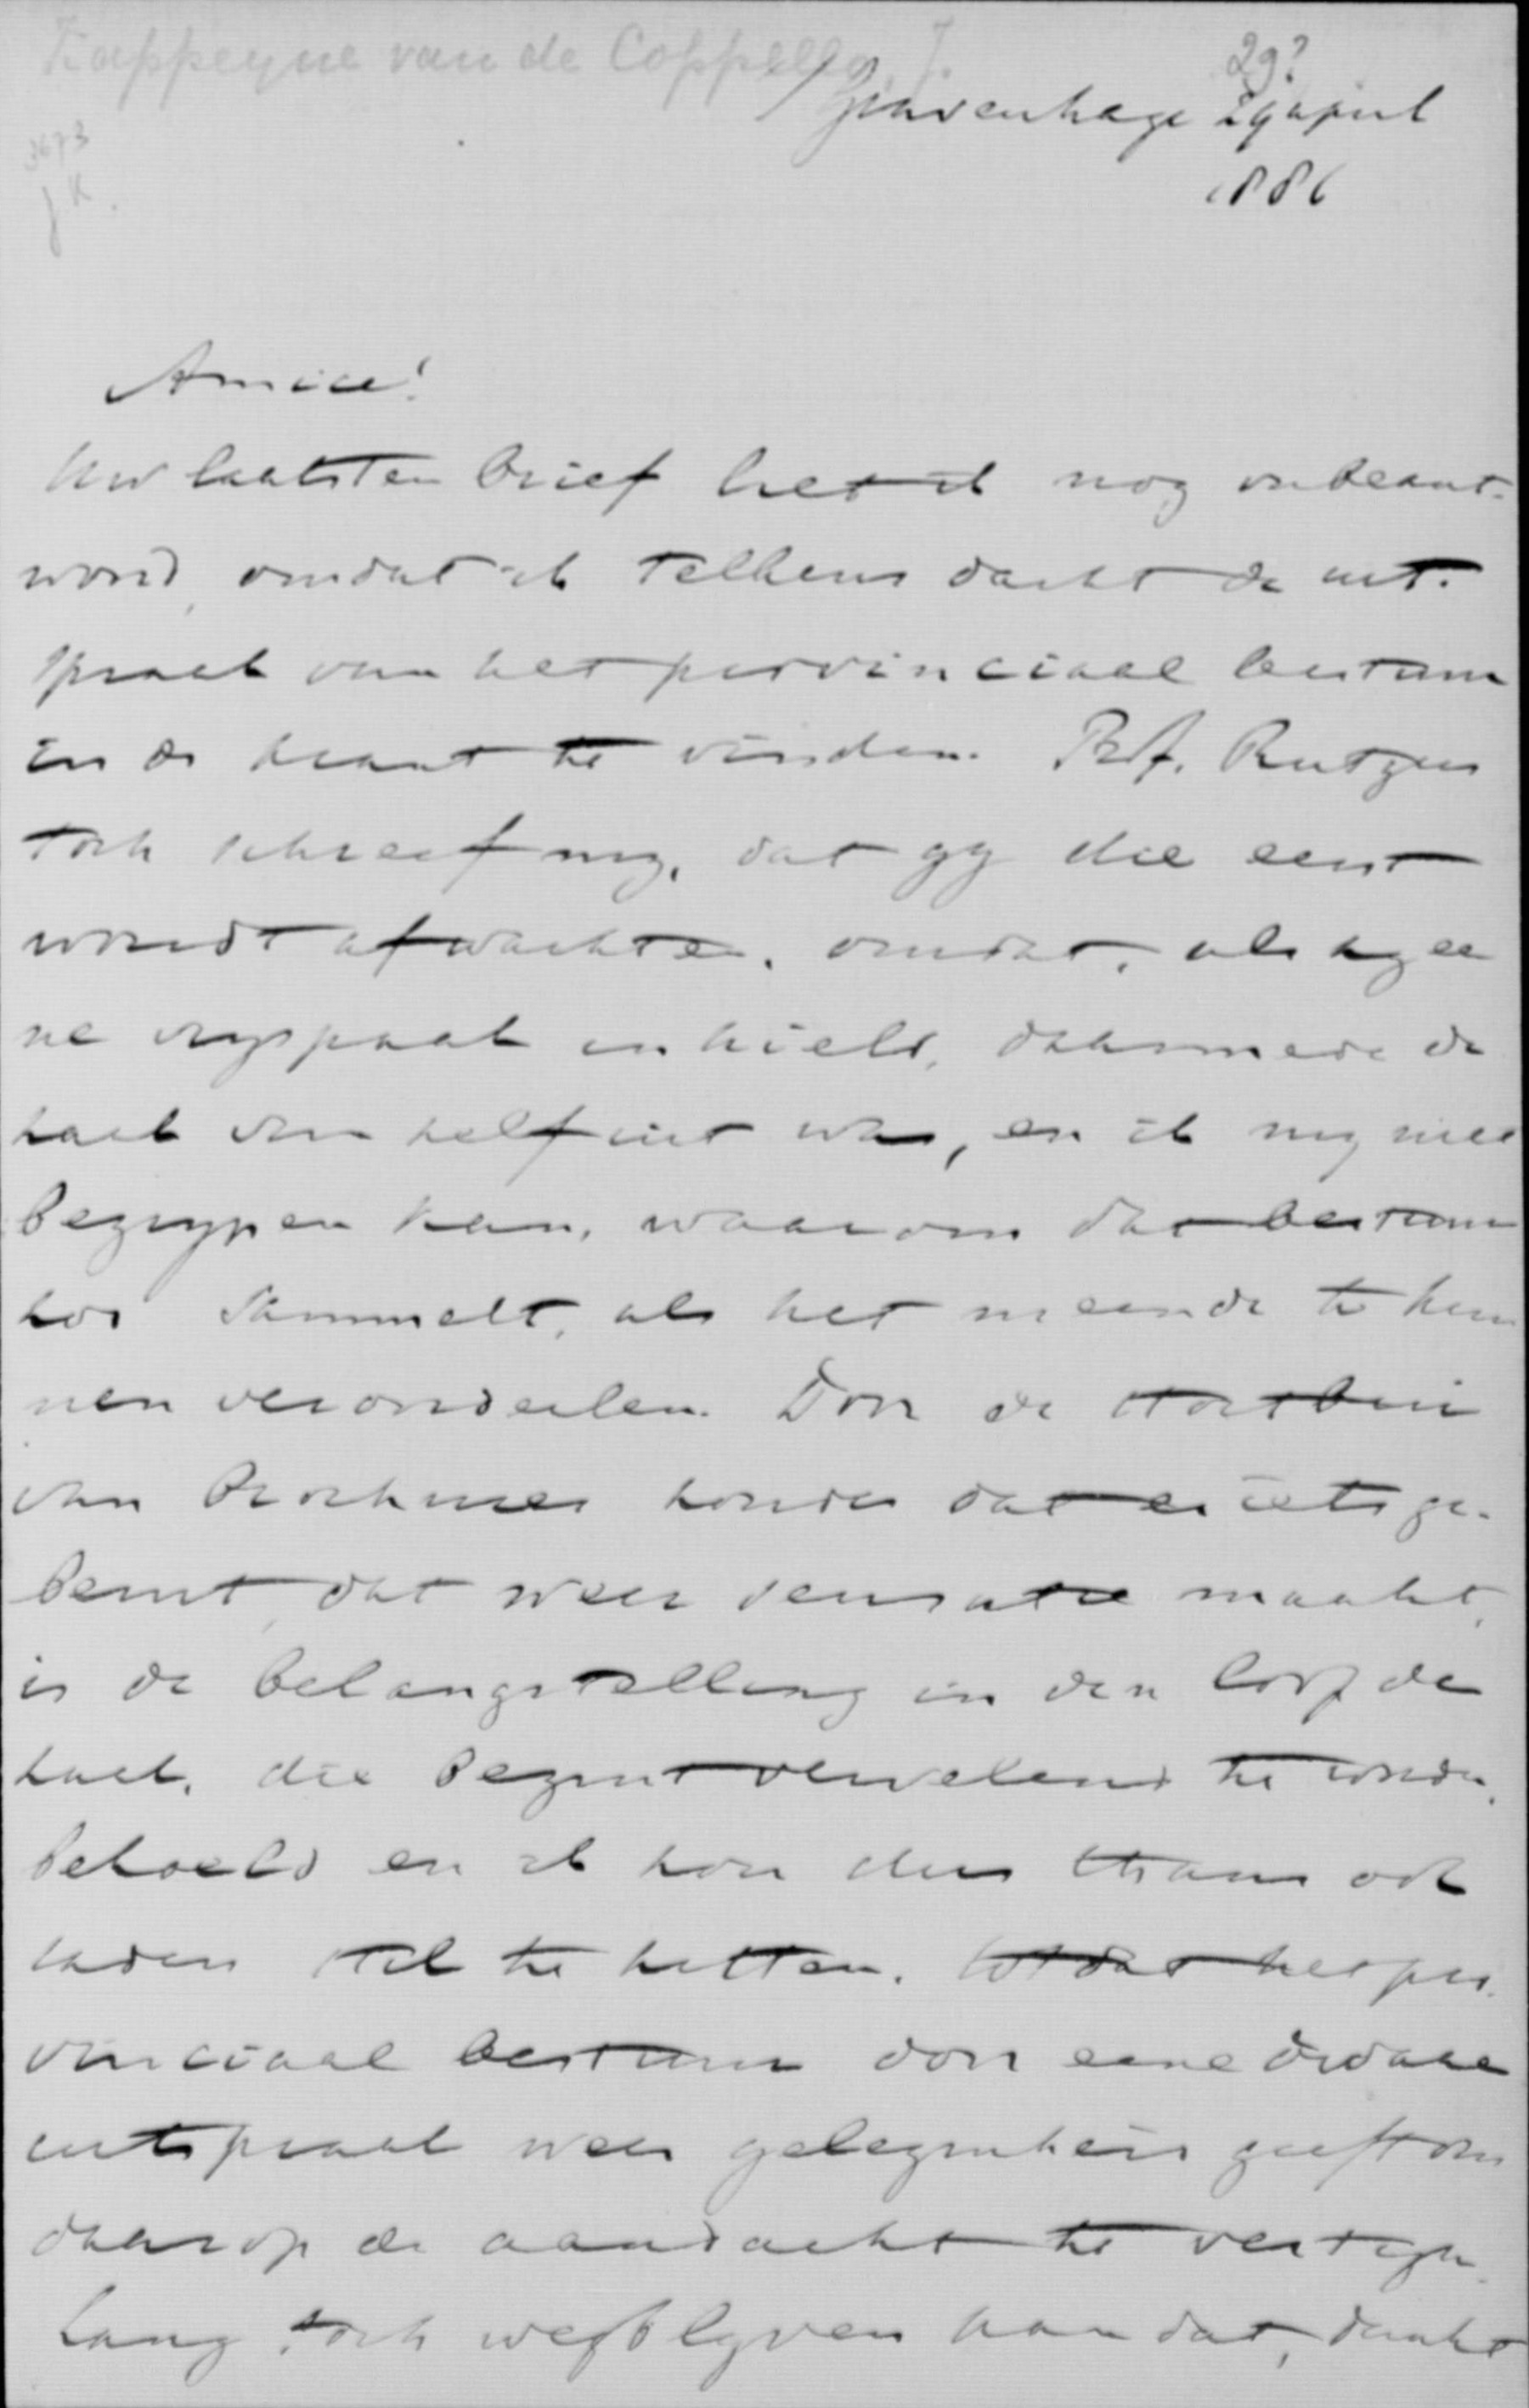 Kappeyne van de Coppello, J.
29?
's Gravenhage 29 april
1886
3673
JK.
Amice!
Uw laatsten brief liet ik nog onbeant-
woord, omdat ik telkens dacht de uit-
spraak van het provinciaal bestuur
in de krant te vinden. Prof. Rutgers
toch schreef my, dat gy die eerst
woudt afwachten, omdat, als zy ee
ne vryspraak inhield, daarmede de
zaak van zelf uit was, en ik my niet
begrypen kan, waarom dat bestuur
zoo talmt, als het meende te kun
nen veroordeelen. Door de stortbui
van Brochures zonder dat er iets ge-
beurt, dat weer sensatie maakt,
is de belangstelling in den loop der
zaak, die begint vervelend te worden,
bekoeld en ik zou dus thans ook
raden stil te zitten, totdat het pro-
vinciaal bestuur door eene
uitspraak weer gelegenheid geeft om
daarop de aandacht te vestigen.
Lang toch wegblyven kan dat, dunkt